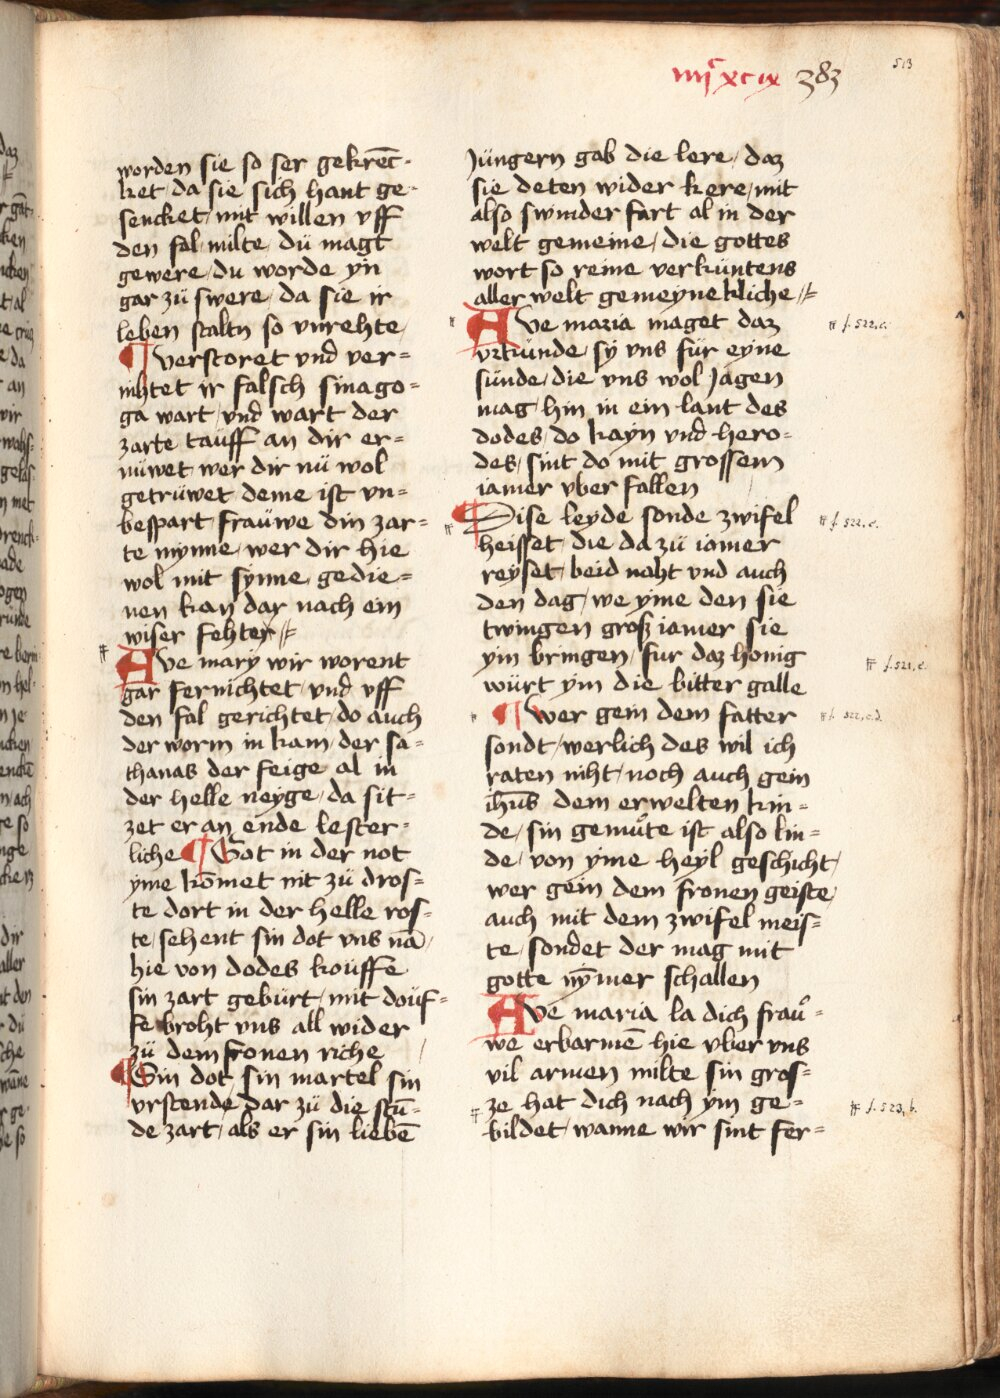 iiijᶜ xcix 383
513
worden sie so ser gekrēc-
ket da sie sich hant ge-
sencket / mit willen vff
den fal / milte / dü magt
gewere / du worde yn
gar zü swere / da sie ir
leben staltn so vnrehte /
¶ verstoret vnd ver=
nihtet ir falsch sinago=
ga wart / vnd wart der
zarte tauff an dir er=
nüwet / wer dir nü wol
getrüwet deme ist vn=
bespart / frauwe din zar=
te mynne / wer dir hie
wol mit synne / gedie=
nen kan dar nach ein
wiser fehter //
Ave mary wir worent
gar fernichtet / vnd vff
den fal gerichtet / do auch
der worm in kam / der sa=
thanas der feige al in
der helle neyge / da sit=
zet er an ende lester=
liche ¶ Got in der not
yme kōmet nit zü dros=
te dort in der helle ros=
te / sehent sin dot vns nā /
hie von dodes kouffe
sin zart gebürt / mit doüf=
fe broht vns all wider
zü dem fronen riche
¶ Sin dot / sin martel sin
vrstende / dar zü die stū=
de zart / als er sin liebē
Jüngern gab die lere / daz
sie deten wider kere / mit
also swinder fart al in der
welt gemeine / die gottes
wort so reine verküntens
aller welt gemeynekliche //
Ave maria maget daz
vrkünde / sy vns für eyne
sünde / die vns wol Jagen
mag / hin in ein lant des
dodes / do kayn vnd hero=
des / sint do mit grossem
iamer vber fallen
¶ Dise leyde sonde zwifel
heisset / die da zü iamer
reyset / beid naht vnd auch
den dag / we yme den sie
twingen groß iamer sie
yin bringen / für daz honig
würt ym die bitter galle
¶ wer gein dem fatter
sondt / werlich des wil ich
raten niht / noch auch gein
ihūs dem erwelten kin=
de / sin gemuͦte ist also lin=
de / von yme heyl geschicht /
wer gein dem fronen geiste /
auch mit dem zwifel meis=
te / sondet der mag mit
gotte nȳmer schallen
Ave maria la dich frauͦ=
we erbarmē hie vber vns
vil armen milte sin gros=
ze hat dich nach ym ge=
bildet / wanne wir sint fer=
f. 522, c.
f. 522, c.
f. 521, c.
f. 522, c. d.
f. 523, b.